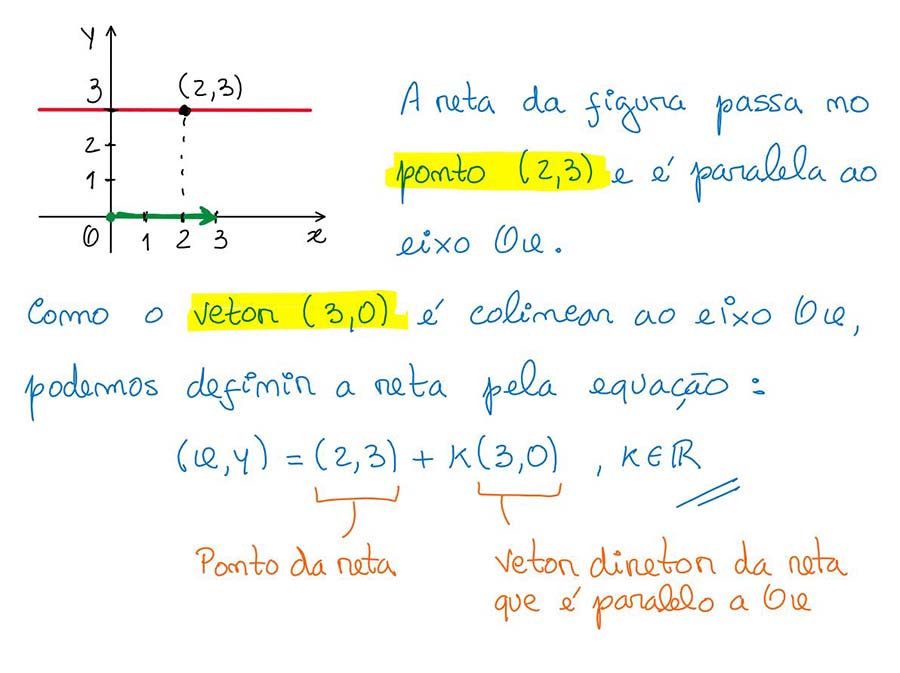 y
3
(2,3)
2
1
0
1
2
3
x
A reta da figura passa no
ponto (2,3) e é paralela ao
eixo Ox.
Como o vetor (3,0) é colinear ao eixo Ox,
podemos definir a reta pela equação:
(x,y) = (2,3) + K(3,0) , K∈ℝ
Ponto da reta
Vetor diretor da reta
que é paralelo a Ox